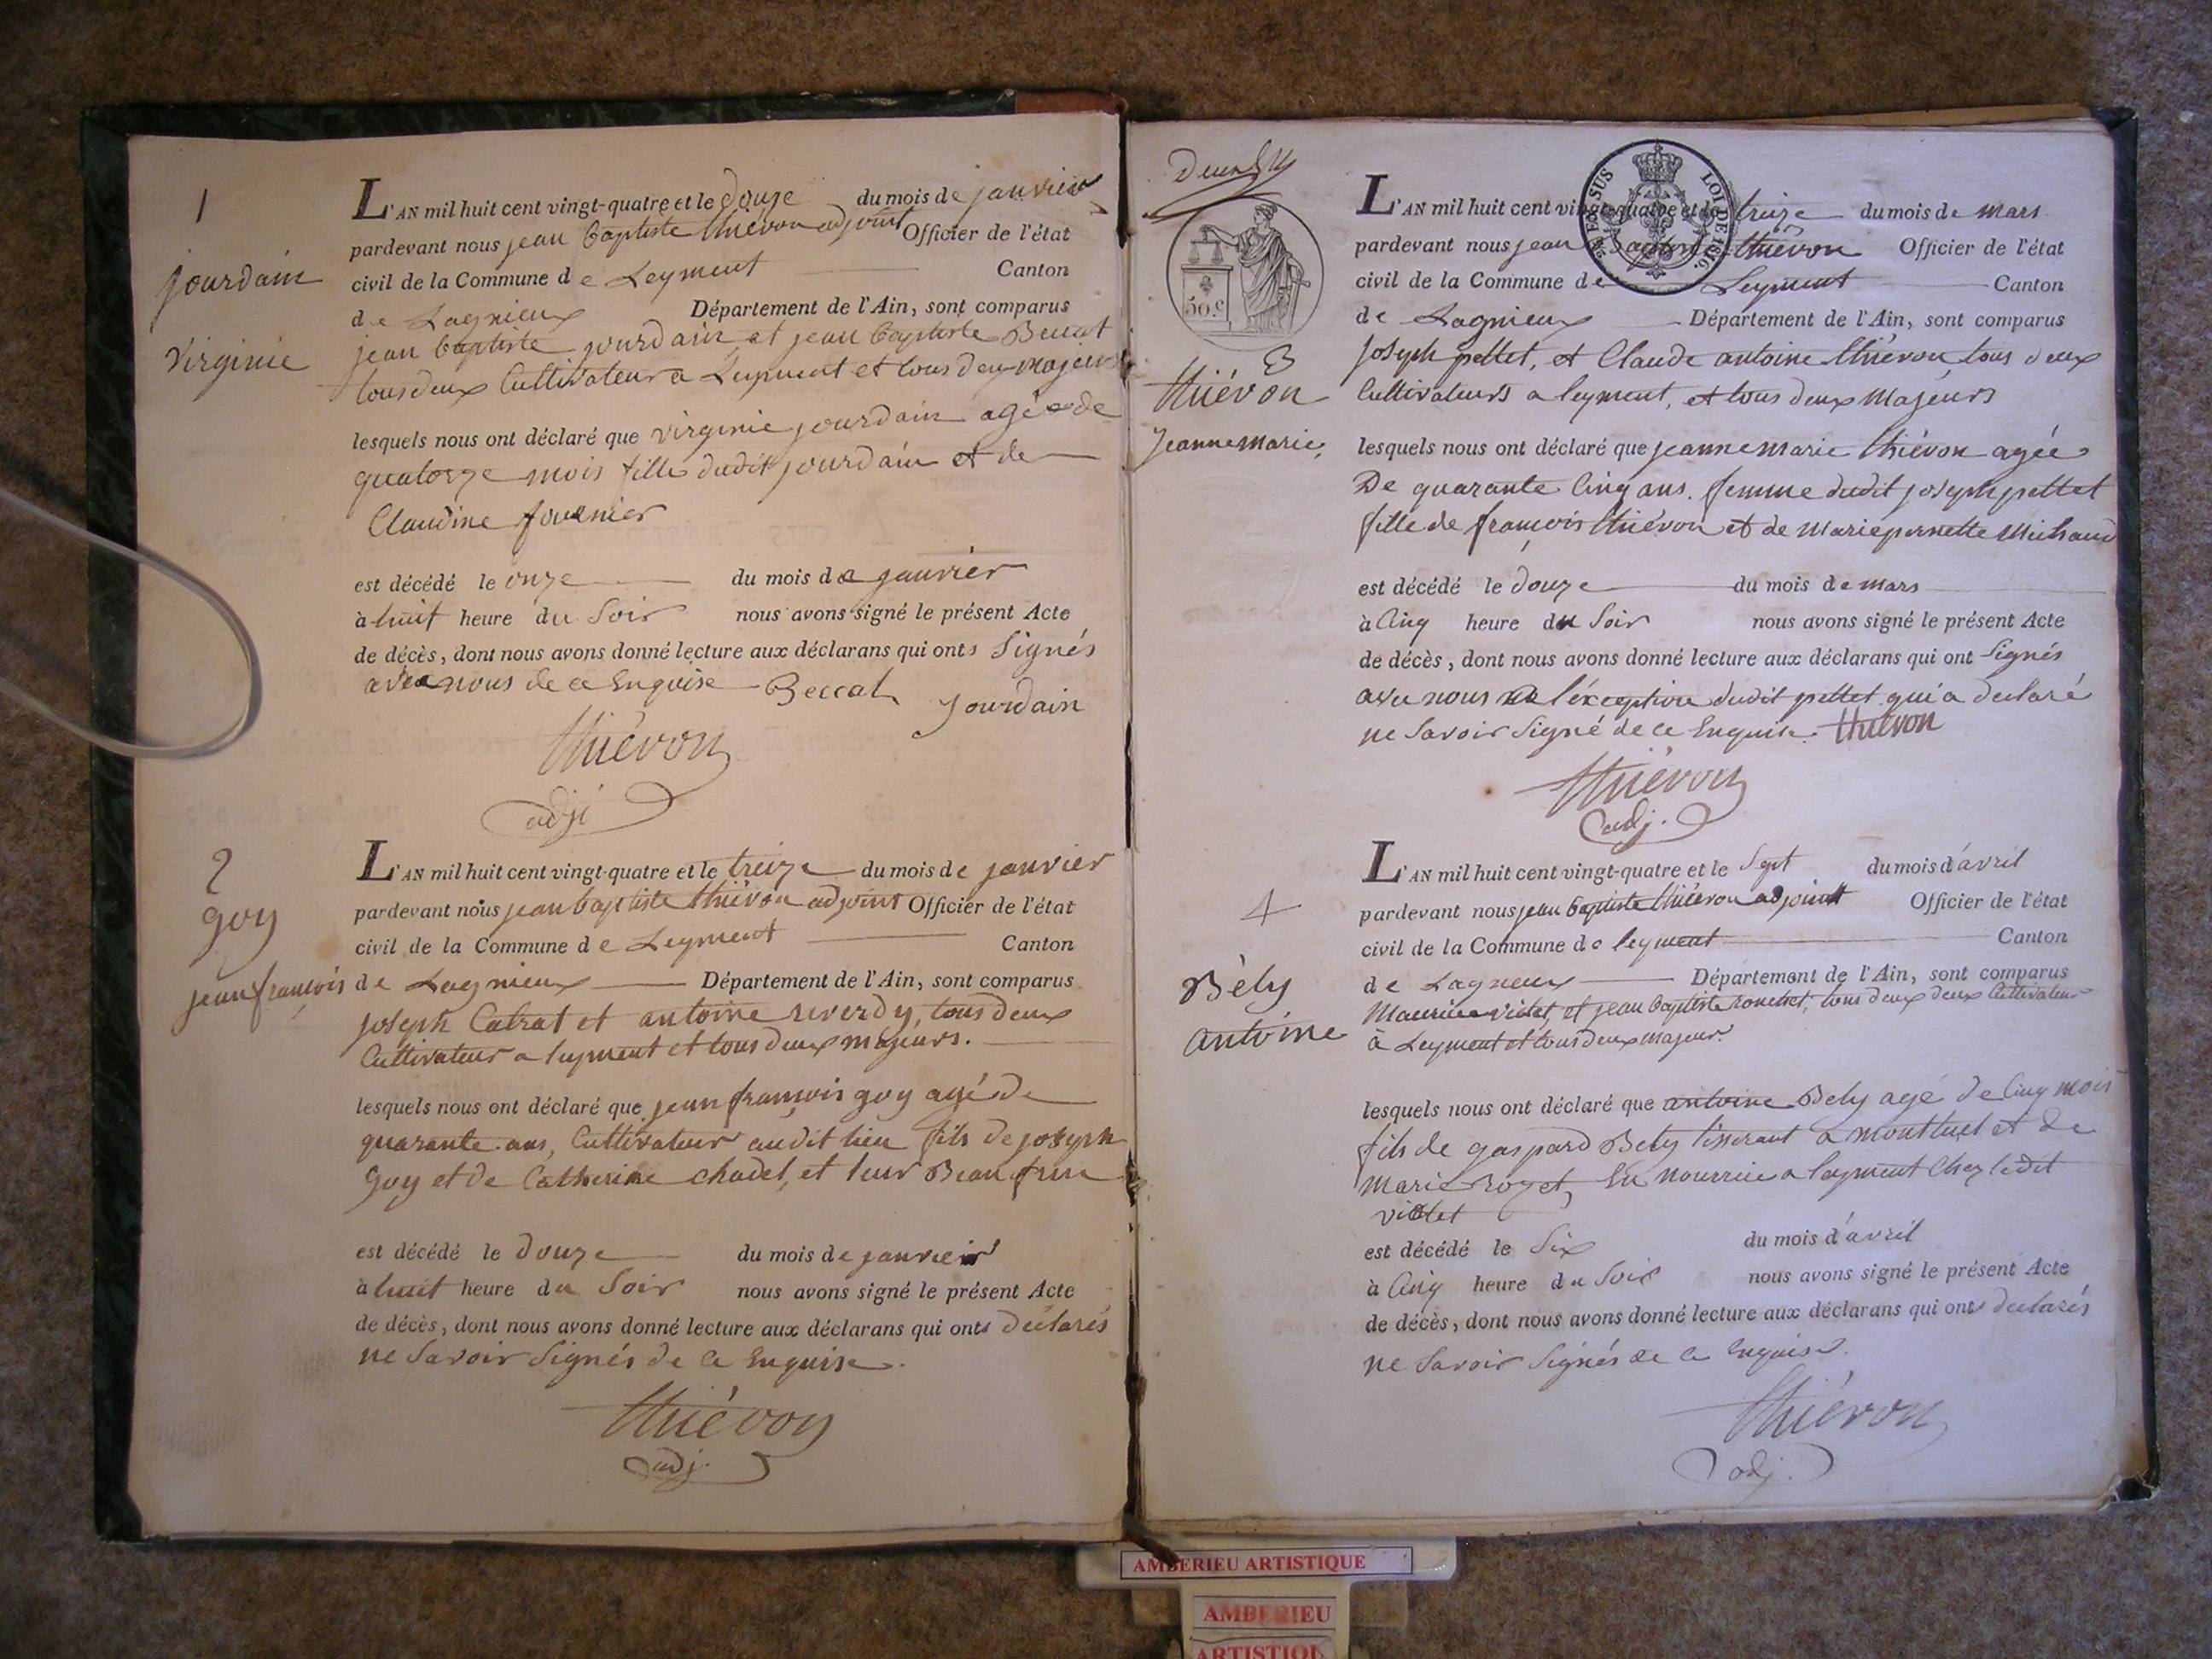 1
jourdain
virginie
L'AN mil huit cent vingt-quatre et le douze du mois de janvier
pardevant nous jean baptiste thiévon adjoint Officier de l'état
civil de la Commune de Leyment Canton
de Lagnieux Département de l'Ain, sont comparus
jean baptiste jourdain et jean baptiste Beccat
tous deux Cultivateur a Leyment et tous deux majeurs
lesquels nous ont déclaré que virginie jourdain agée de
quatorze mois fille dudit jourdain et de
Claudine fournier
est décédé le onze du mois de janvier
à huit heure du Soir nous avons signé le présent Acte
de décès, dont nous avons donné lecture aux déclarans qui onts Signés
avec nous de ce Enquise Beccat Jourdain
thiévon
adj
2
goy
jean françois
L'AN mil huit cent vingt-quatre et le treize du mois de janvier
pardevant nous jean baptiste thiévon adjoint Officier de l'état
civil de la Commune de Leyment Canton
de Lagnieux Département de l'Ain, sont comparus
joseph Catrat et antoine reverdy, tous deux
Cultivateur a leyment et tous deux majeurs.
lesquels nous ont déclaré que jean françois goy agé de
quarante ans, Cultivateur audit lieu fils de joseph
goy et de Catherine chadel, et leur Beau frere
est décédé le douze du mois de janvier
à huit heure du Soir nous avons signé le présent Acte
de décès, dont nous avons donné lecture aux déclarans qui onts déclarés
ne Savoir Signés de ce Enquise.
thiévon
adj.
50.c
EN SUS LOI DE 1816.
3
thiévon
Jeanne marie
L'AN mil huit cent vingt-quatre et le treize du mois de mars
pardevant nous jean baptiste thiévon Officier de l'état
civil de la Commune de Leyment Canton
de Lagnieux Département de l'Ain, sont comparus
joseph pettet, et Claude antoine thiévon, tous deux
Cultivateurs a leyment, et tous deux Majeurs
lesquels nous ont déclaré que jeanne marie thiévon agée
De quarante Cinq ans. femme dudit joseph pettet
fille de françois thiévon et de marie pernette Michaud
est décédé le douze du mois de mars
à Cinq heure du Soir nous avons signé le présent Acte
de décès, dont nous avons donné lecture aux déclarans qui ont Signés
avec nous a l'exception dudit pettet qui a declaré
ne Savoir Signé de ce Enquise. thiévon
thiévon
adj.
4
Bély
antoine
L'AN mil huit cent vingt-quatre et le Sept du mois d'avril
pardevant nous jean baptiste thiévon adjoint Officier de l'état
civil de la Commune de leyment Canton
de Lagneux Département de l'Ain, sont comparus
Maurice viollet, et jean baptiste ronchet, tous deux deux Cultivateur
à Leyment et tous deux majeur.
lesquels nous ont déclaré que antoine Bely agé de Cinq mois
fils de gaspard Bely tisserant a montluel et de
marie rozet, En nourrice a leyment Chez ledit
viollet
est décédé le Six du mois d'avril
à Cinq heure du Soir nous avons signé le présent Acte
de décès, dont nous avons donné lecture aux déclarans qui onts declarés
ne Savoir Signés de ce Enquise.
thiévon
adj.
AMBERIEU ARTISTIQUE
AMBERIEU
ARTISTIQU